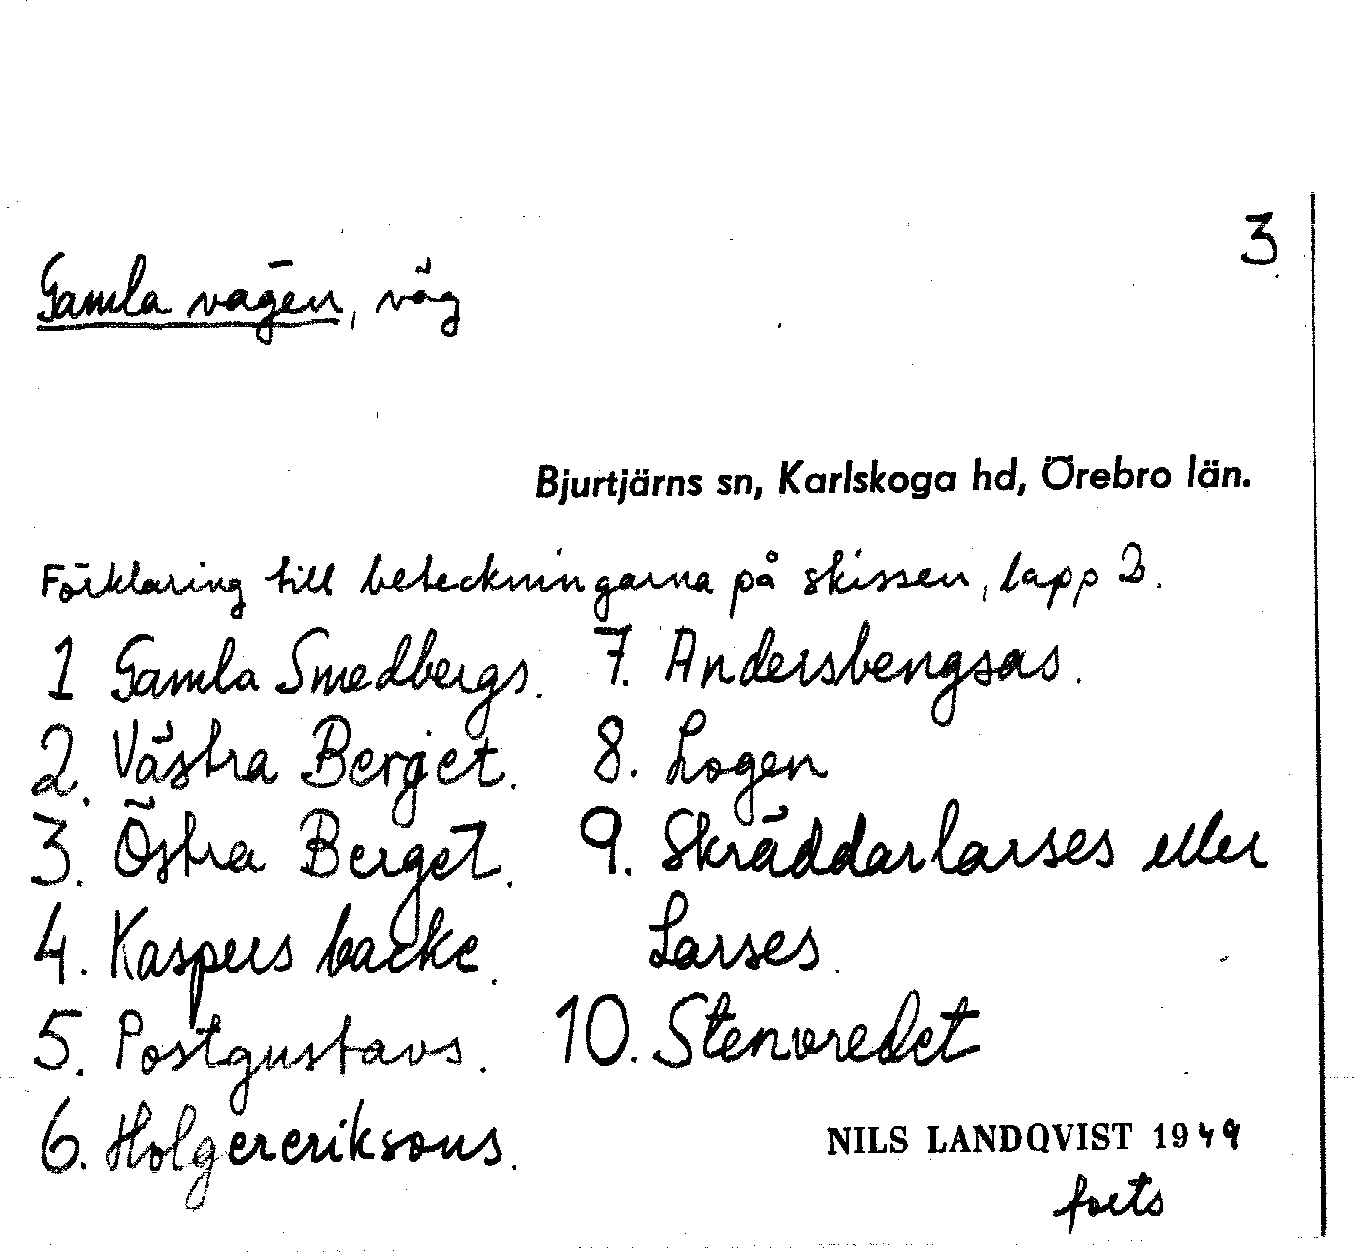 3
Gamla vägen, väg
Bjurtjärns sn, Karlskoga hd, Örebro län.
Förklaring till beteckningarna på skissen, lapp 2.
1 Gamla Smedbergs.
2. Västra Berget.
3. Östra Berget.
4. Kaspers backe.
5. Postgustavs.
6. Holgereriksons.
7. Andersbengsas.
8. Logen
9. Skräddarlarses eller
Larses.
10. Stenvredet
NILS LANDQVIST 1949
forts